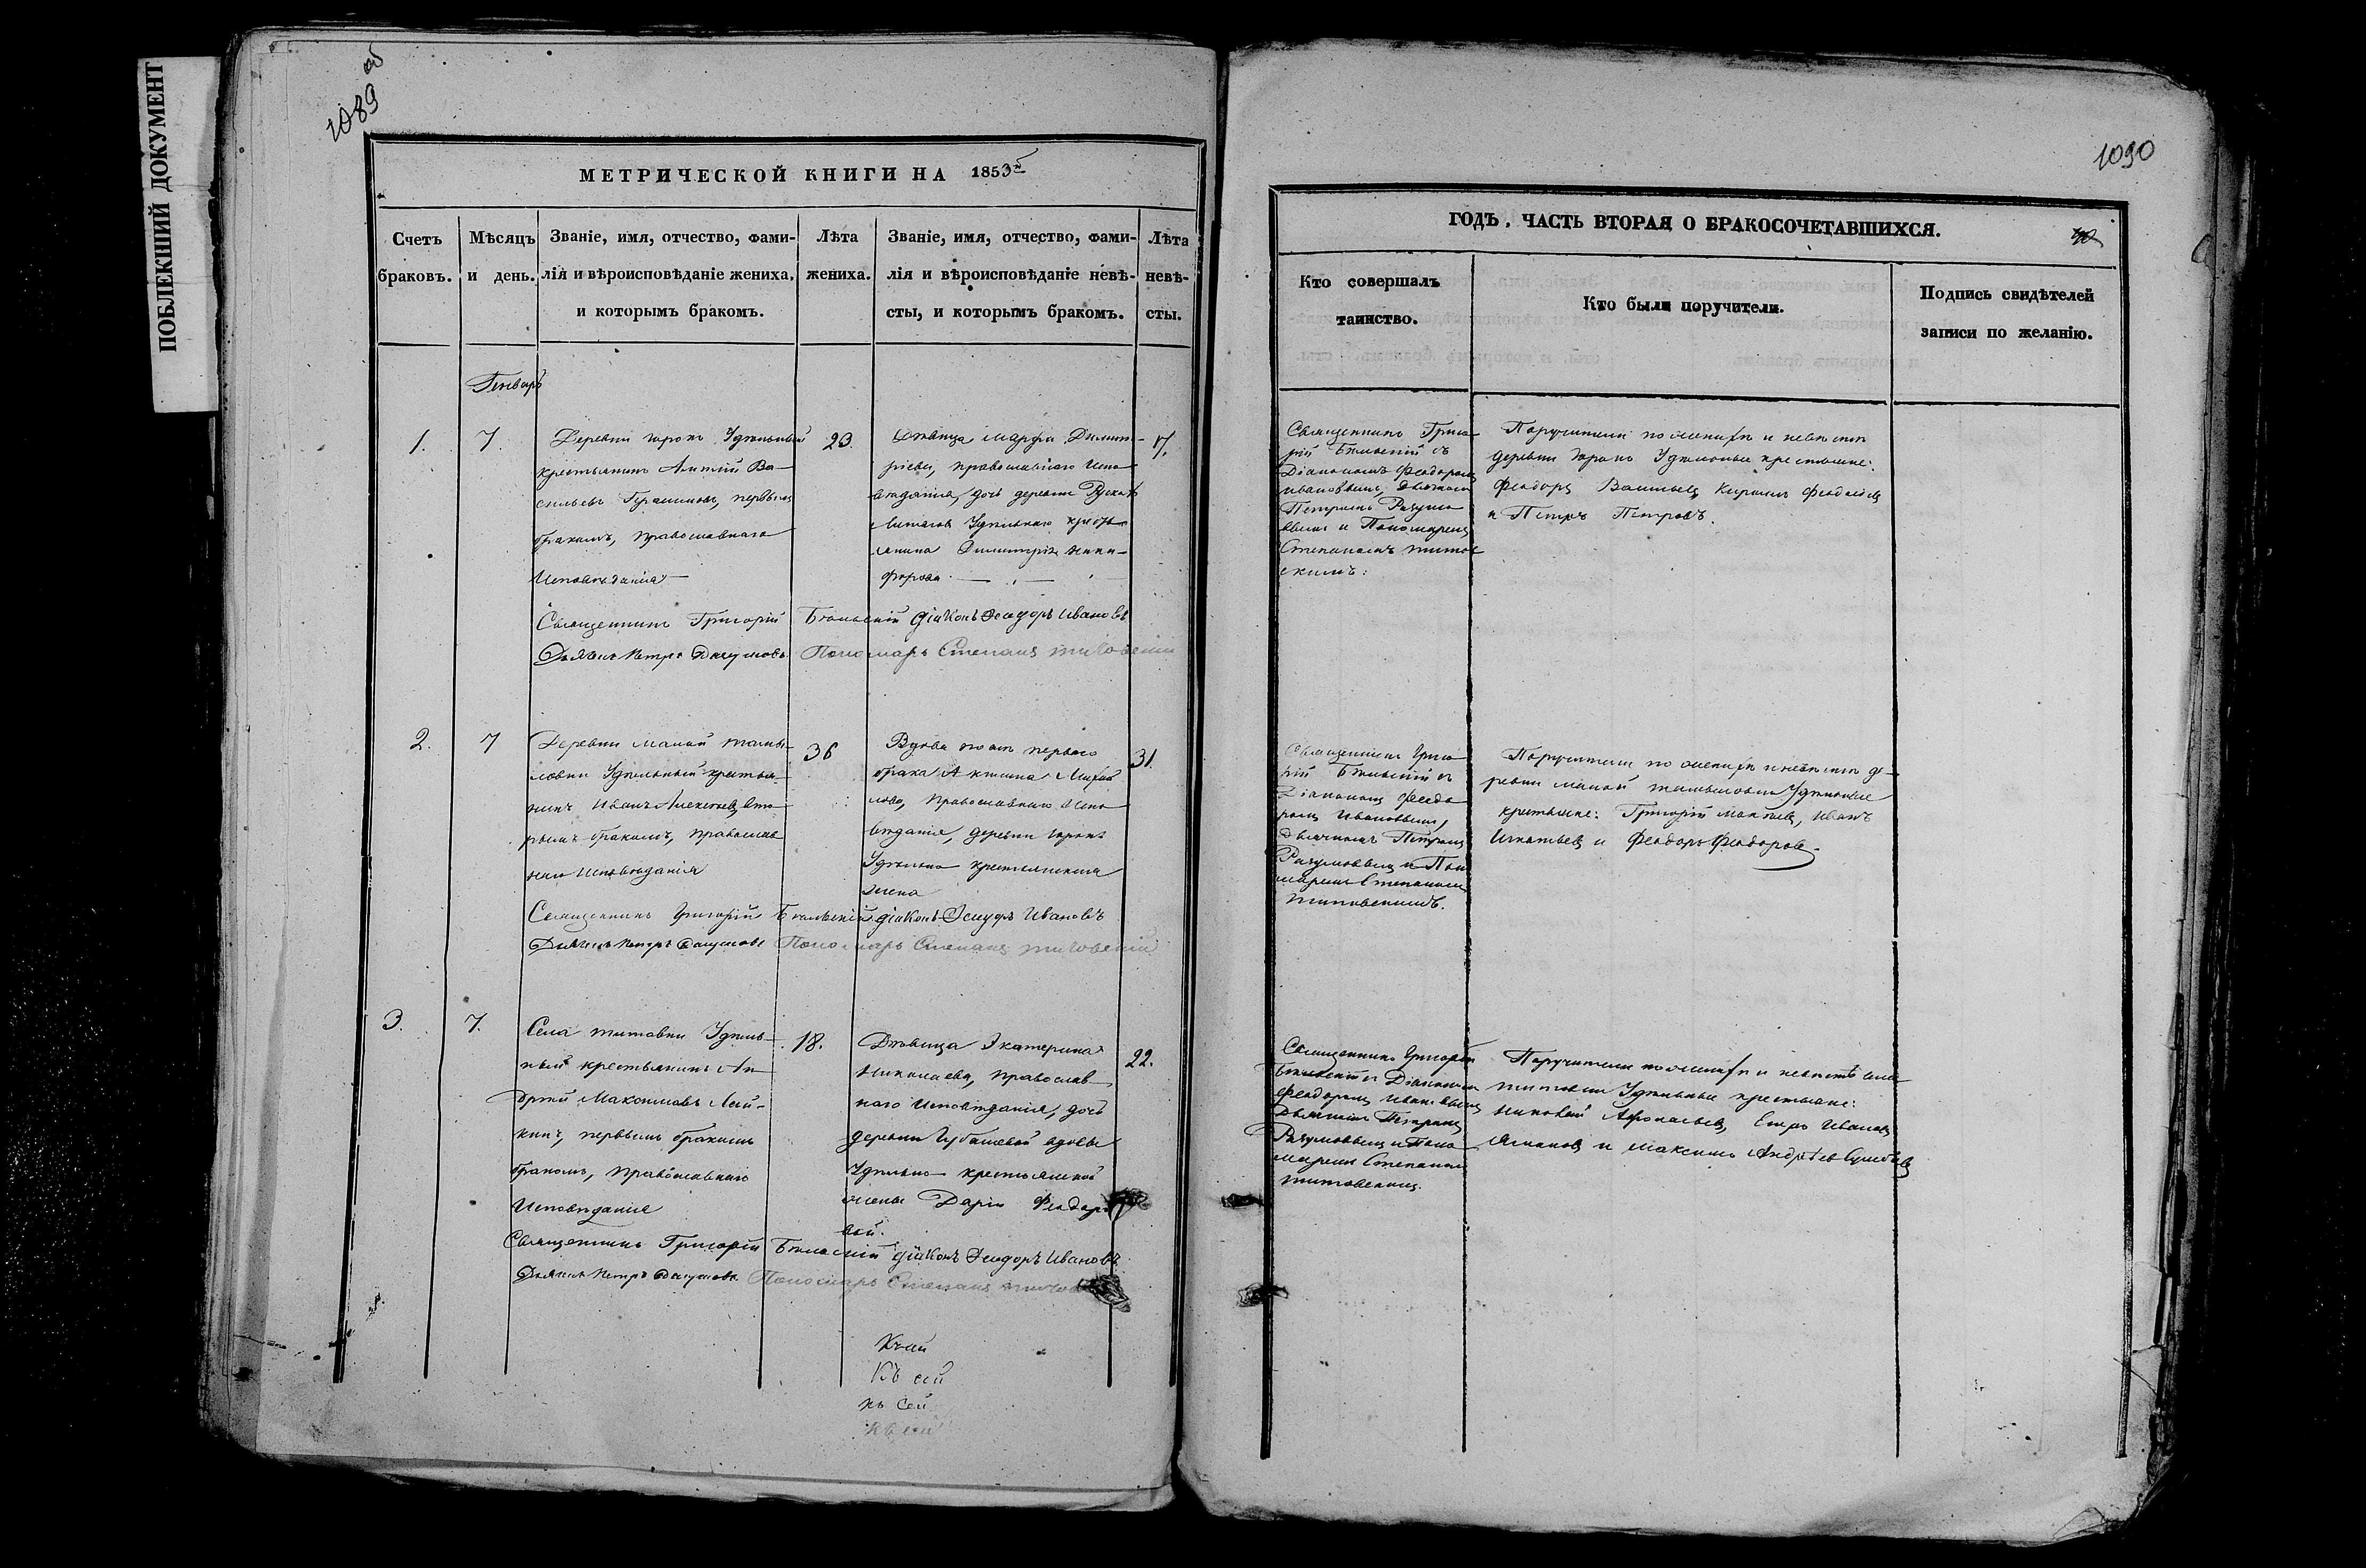 ПОБЛЕКШИЙ ДОКУМЕНТ
1089 об
МЕТРИЧЕСКОЙ КНИГИ НА 1853й
Счетъ браковъ.
Мѣсяцъ и день.
Званіе, имя, отчество, фами-
лія и вѣроисповѣданіе жениха,
и которымъ бракомъ.
Лѣта жениха.
Званіе, имя, отчество, фами-
лія и вѣроисповѣданіе невѣ-
сты, и которымъ бракомъ.
Лѣта невѣ-
сты.
Генварь
1.
7.
Деревни Удѣльный
крестьянинъ Ва-
сильевъ первымъ
бракомъ, православнаго
Исповѣданія
23.
Дѣвица Марфа Димит-
ріева, православнаго Испо
вѣданія, дочь деревни
Удѣльнаго кресть
янина Димитрія Ники-
форова
17.
Священникъ Григорій Бѣльскій діаконъ Ѳеодоръ Ивановъ
Дьячекъ Петръ Разумовъ Пономарь Степанъ Титовскій
2.
7
Деревни малой
Удѣльный крестья-
нинъ Иванъ Алексѣевъ вто
рымъ бракомъ, православ
наго Исповѣданія
36
Вдова послѣ перваго
брака Михай
лова, православнаго Испо
вѣданія, деревни
Удѣльно крестьянская
жена
31.
Священникъ Григорій Бѣльскій діаконъ Ѳеодоръ Ивановъ
Дьячекъ Петръ Разумовъ Пономарь Степанъ Титовскій
3.
7.
Села Титовки Удѣль-
ный крестьянинъ Ан
дрей Максимовъ
первымъ бракомъ
бракомъ, православнаго
Исповѣданія
18.
Дѣвица Екатерина
Николаева, православ
наго Исповѣданія, дочь
деревни вдовы
Удѣльно крестьянской
жены Даріи Ѳеодоро
вой.
22.
Священникъ Григорій Бѣльскій діаконъ Ѳеодоръ Ивановъ
Дьячекъ Петръ Разумовъ Пономарь Степанъ
Къ сей
Къ сей
къ сей
къ сей
1090
ГОДЪ, ЧАСТЬ ВТОРАЯ О БРАКОСОЧЕТАВШИХСЯ.
Кто совершалъ
таинство.
Кто были поручители.
Подпись свидѣтелей
записи по желанію.
Священникъ Григо
рій Бѣльскій съ
Діакономъ Феодоромъ
Ивановымъ, Дьячкомъ
Петромъ Разумо
вымъ и Пономаремъ
Степаномъ Титов
скимъ:
Поручители по женихѣ и невѣстѣ
деревни Удѣльные крестьяне:
Феодоръ Васильевъ, Кириллъ
и Петръ Петровъ.
Священникъ Григо
рій Бѣльскій съ
Діакономъ Феодо
ромъ Ивановымъ,
Дьячкомъ Петромъ
Разумовымъ и Поно
маремъ Степаномъ
Титовскимъ.
Поручители по женихѣ и невѣстѣ де-
ревни малой Удѣльные
крестьяне: Григорій Иванъ
Игнатьевъ и Феодоръ Феодоровъ.
Священникъ Григорій
Бѣльскій съ Діакономъ
Феодоромъ Ивановымъ
Дьячкомъ Петромъ
Разумовымъ и Поно
маремъ Степаномъ
Титовскимъ.
Поручители по женихѣ и невѣстѣ села
Титовки Удѣльные крестьяне:
Афонасьевъ, Иванъ
и Максимъ Андреевъ